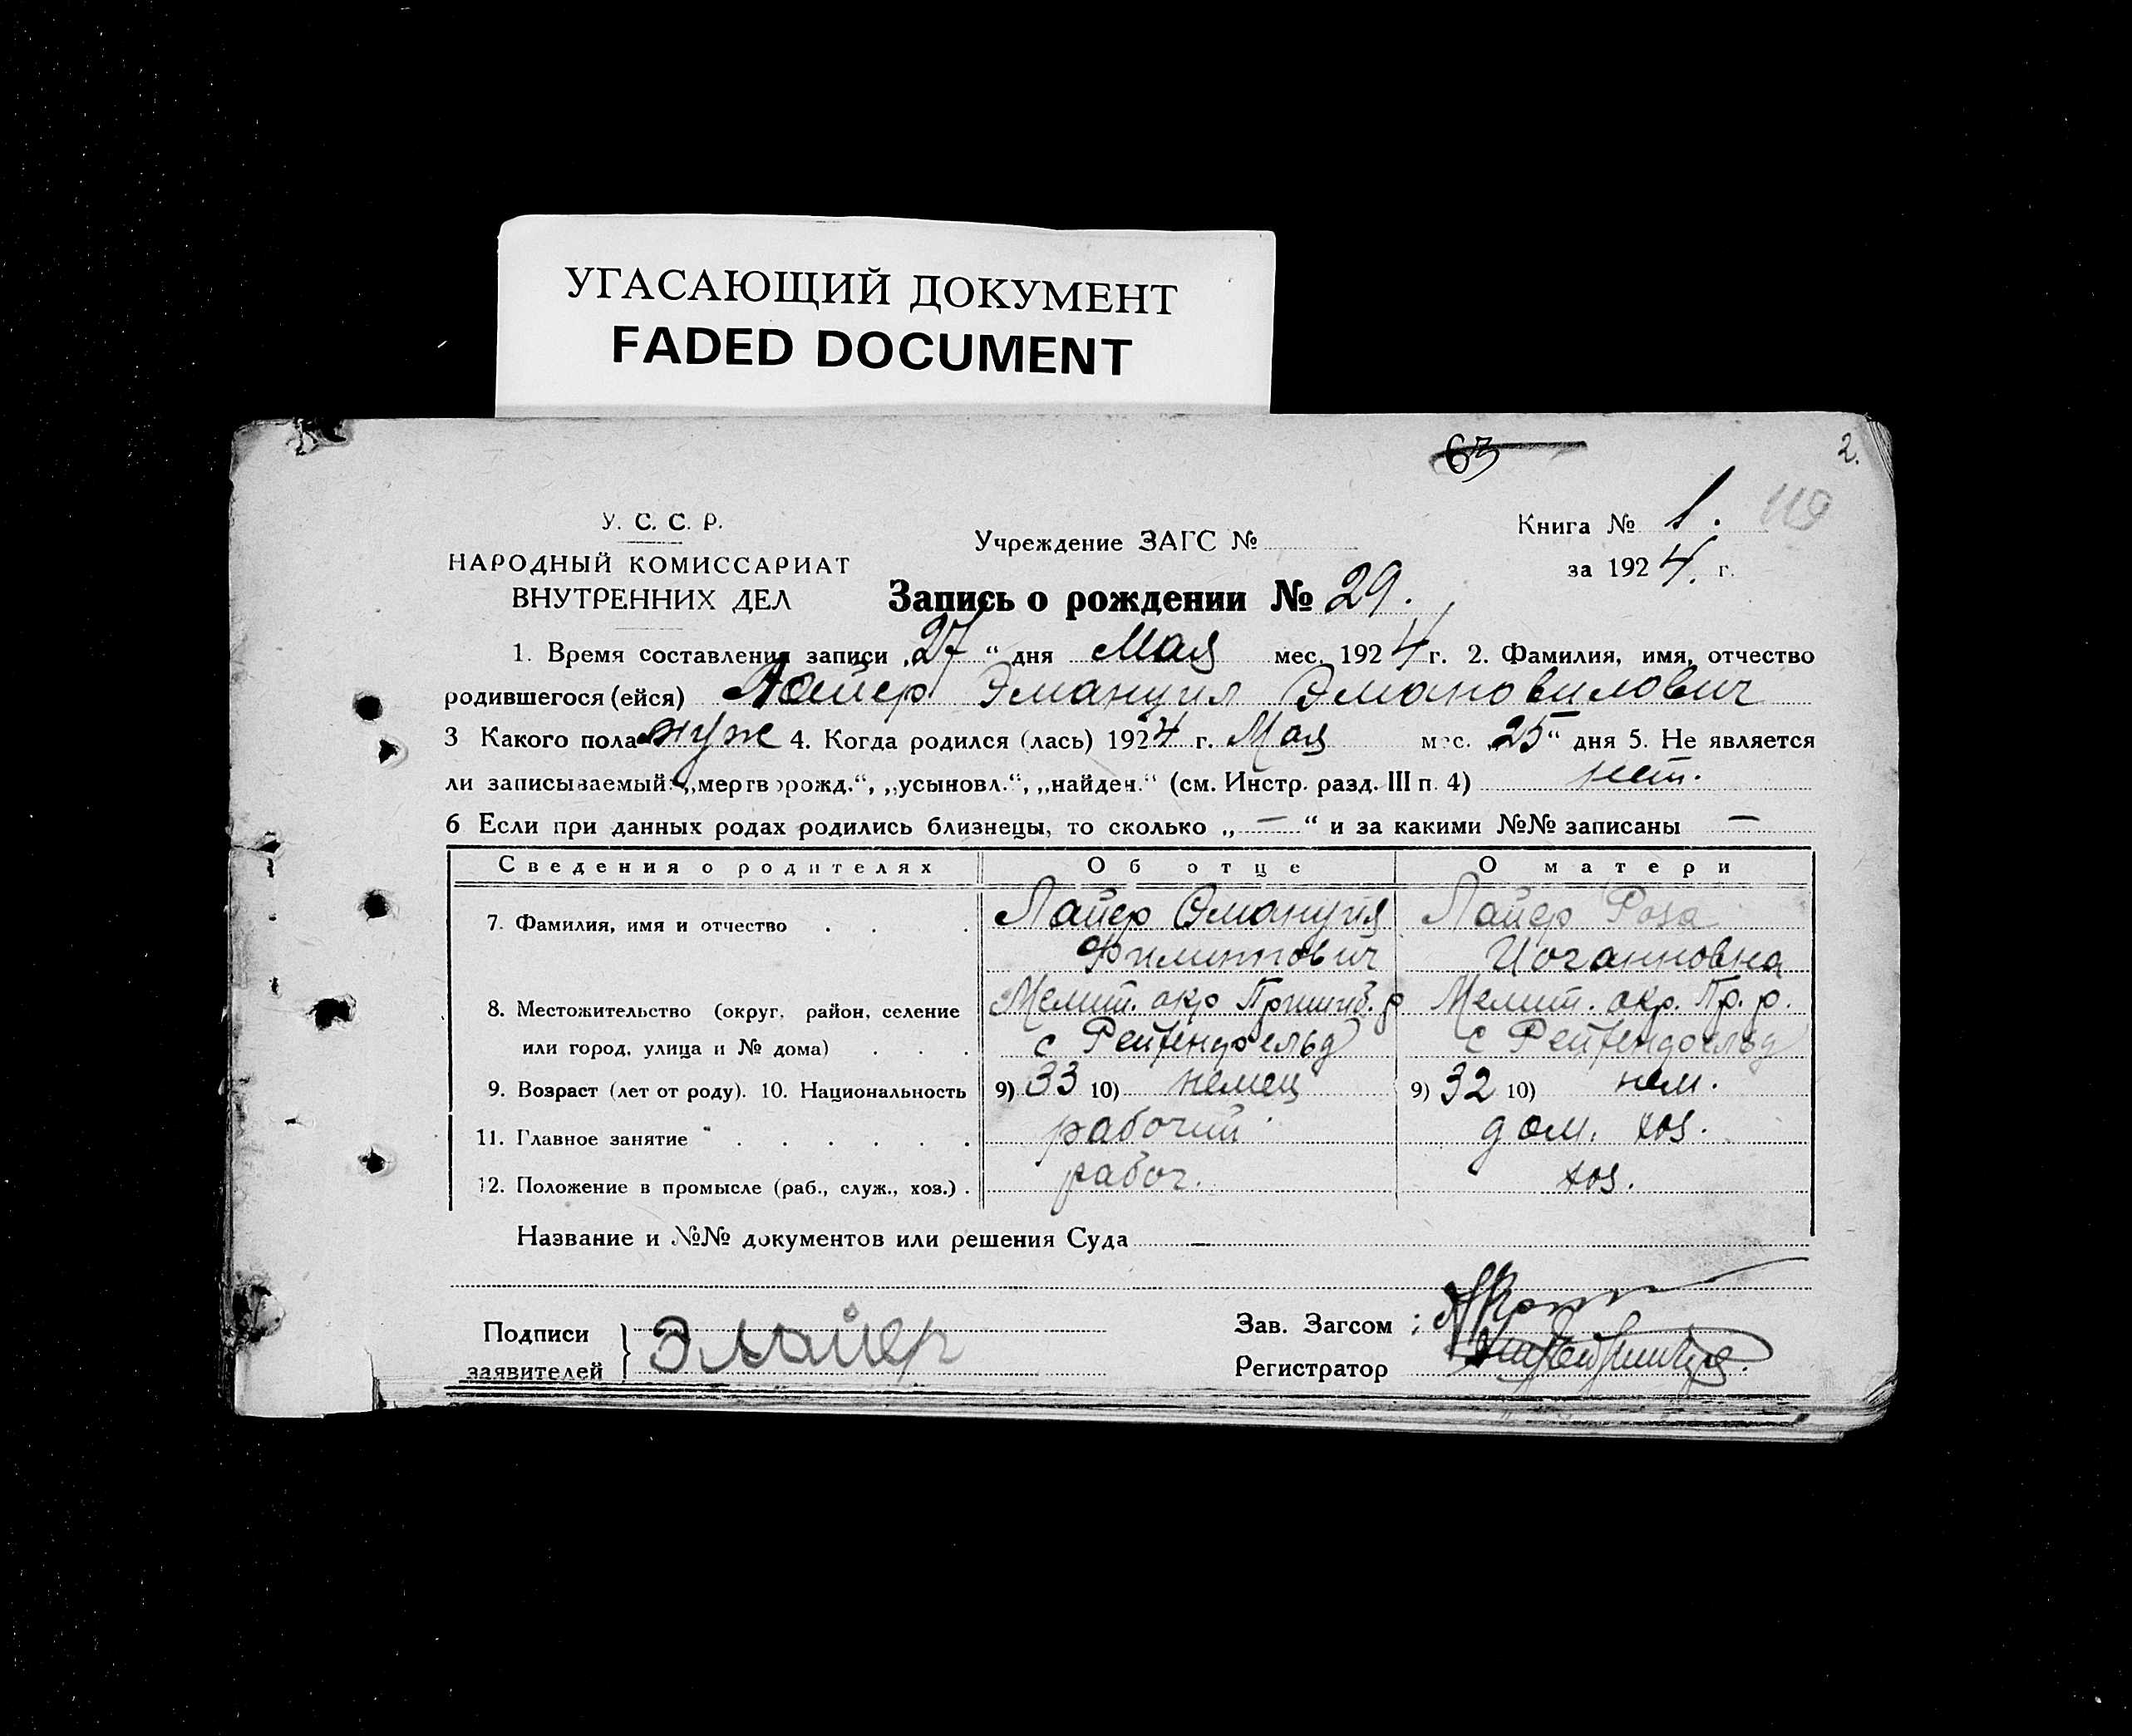 УГАСАЮЩИЙ ДОКУМЕНТ
FADED DOCUMENT
63
2.
110
У. С. С. Р.
НАРОДНЫЙ КОМИССАРИАТ
ВНУТРЕННИХ ДЕЛ
Учреждение ЗАГС №
Книга № 1.
за 1924. г.
Запись о рождении № 29.
1. Время составления записи „27“ дня Мая мес. 1924 г. 2. Фамилия, имя, отчество
родившегося (ейся) Лайер Эмануил Эмановилович
3 Какого пола муж 4. Когда родился (лась) 1924 г. Мая мес. „25“ дня 5. Не является
ли записываемый: „мертворожд.“, „усыновл.“, „найден.“ (см. Инстр. разд. III п. 4) нет.
6 Если при данных родах родились близнецы, то сколько „—“ и за какими №№ записаны —
Сведения о родителях Об отце О матери
7. Фамилия, имя и отчество . . . Лайер Эмануил Лайер Роза
Филиппович Иоганновна
8. Местожительство (округ, район, селение Мелит. окр Пришиб. р Мелит. окр. Пр. р.
или город, улица и № дома) . . . с Рейхенфельд с Рейхенфельд
9. Возраст (лет от роду). 10. Национальность 9) 33 10) немец 9) 32 10) нем.
11. Главное занятие . . . . . . рабочий дом. хоз.
12. Положение в промысле (раб., служ., хоз.) . рабоч. хоз.
Название и №№ документов или решения Суда —
Подписи
заявителей } Э Лайер
Зав. Загсом
Регистратор